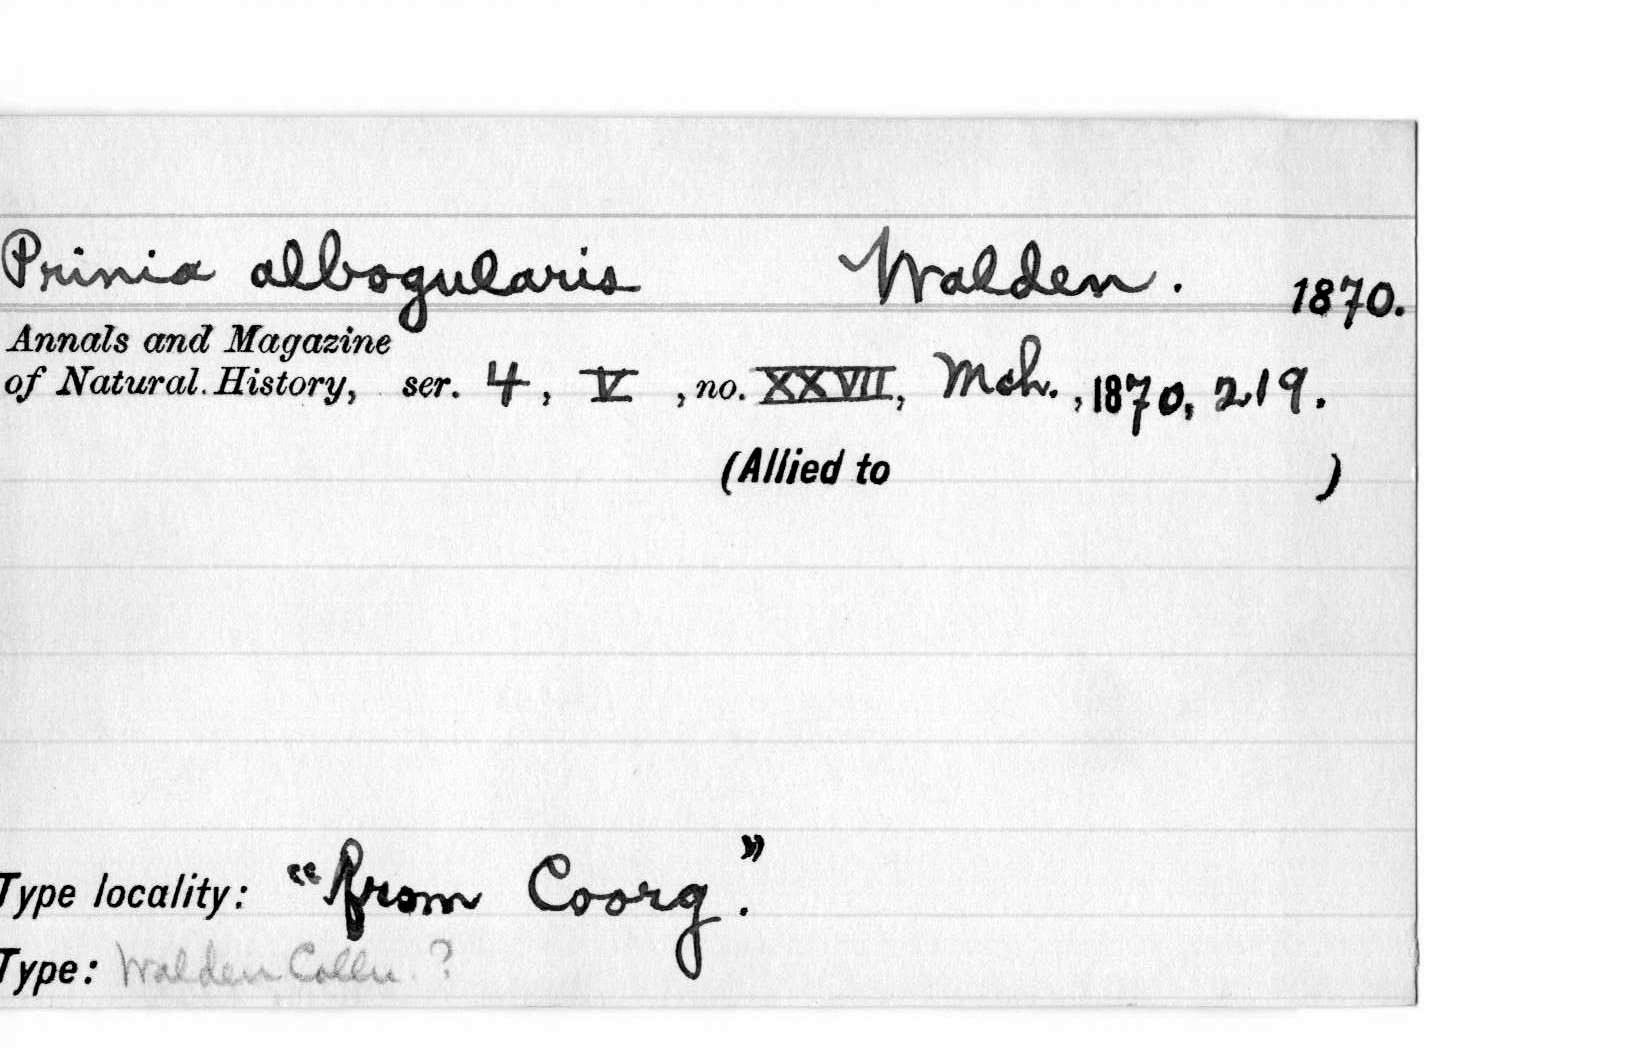 Prinia albogularis Walden. 1870.
Annals and Magazine
of Natural History, ser. 4, V, no. XXVII, Mch., 1870, 219.
(Allied to )
Type locality: "from Coorg."
Type: Walden Colln. ?